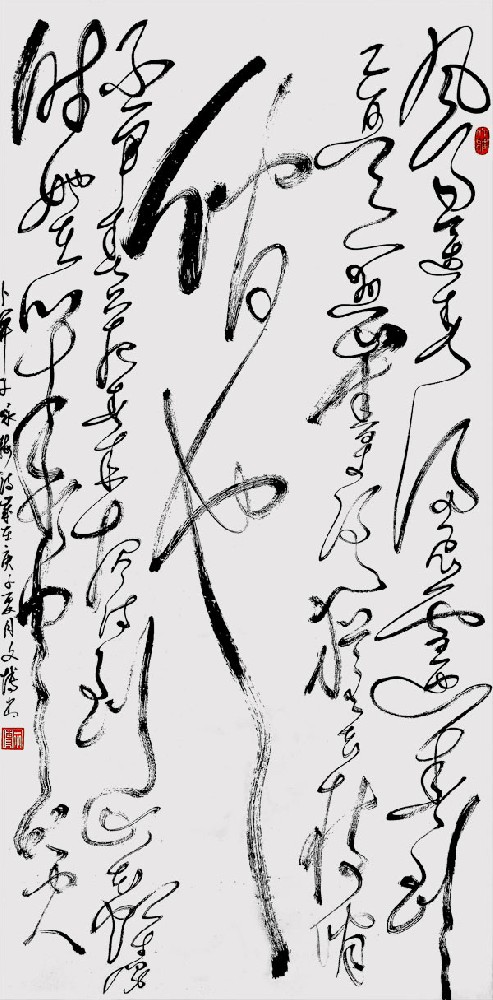 风雨送春归飞雪迎春到
已是悬崖百丈冰犹有花枝俏
俏也
不争春只把春来报待到山花烂漫
时她在丛中笑
卜算子咏梅 庚子夏月文博书